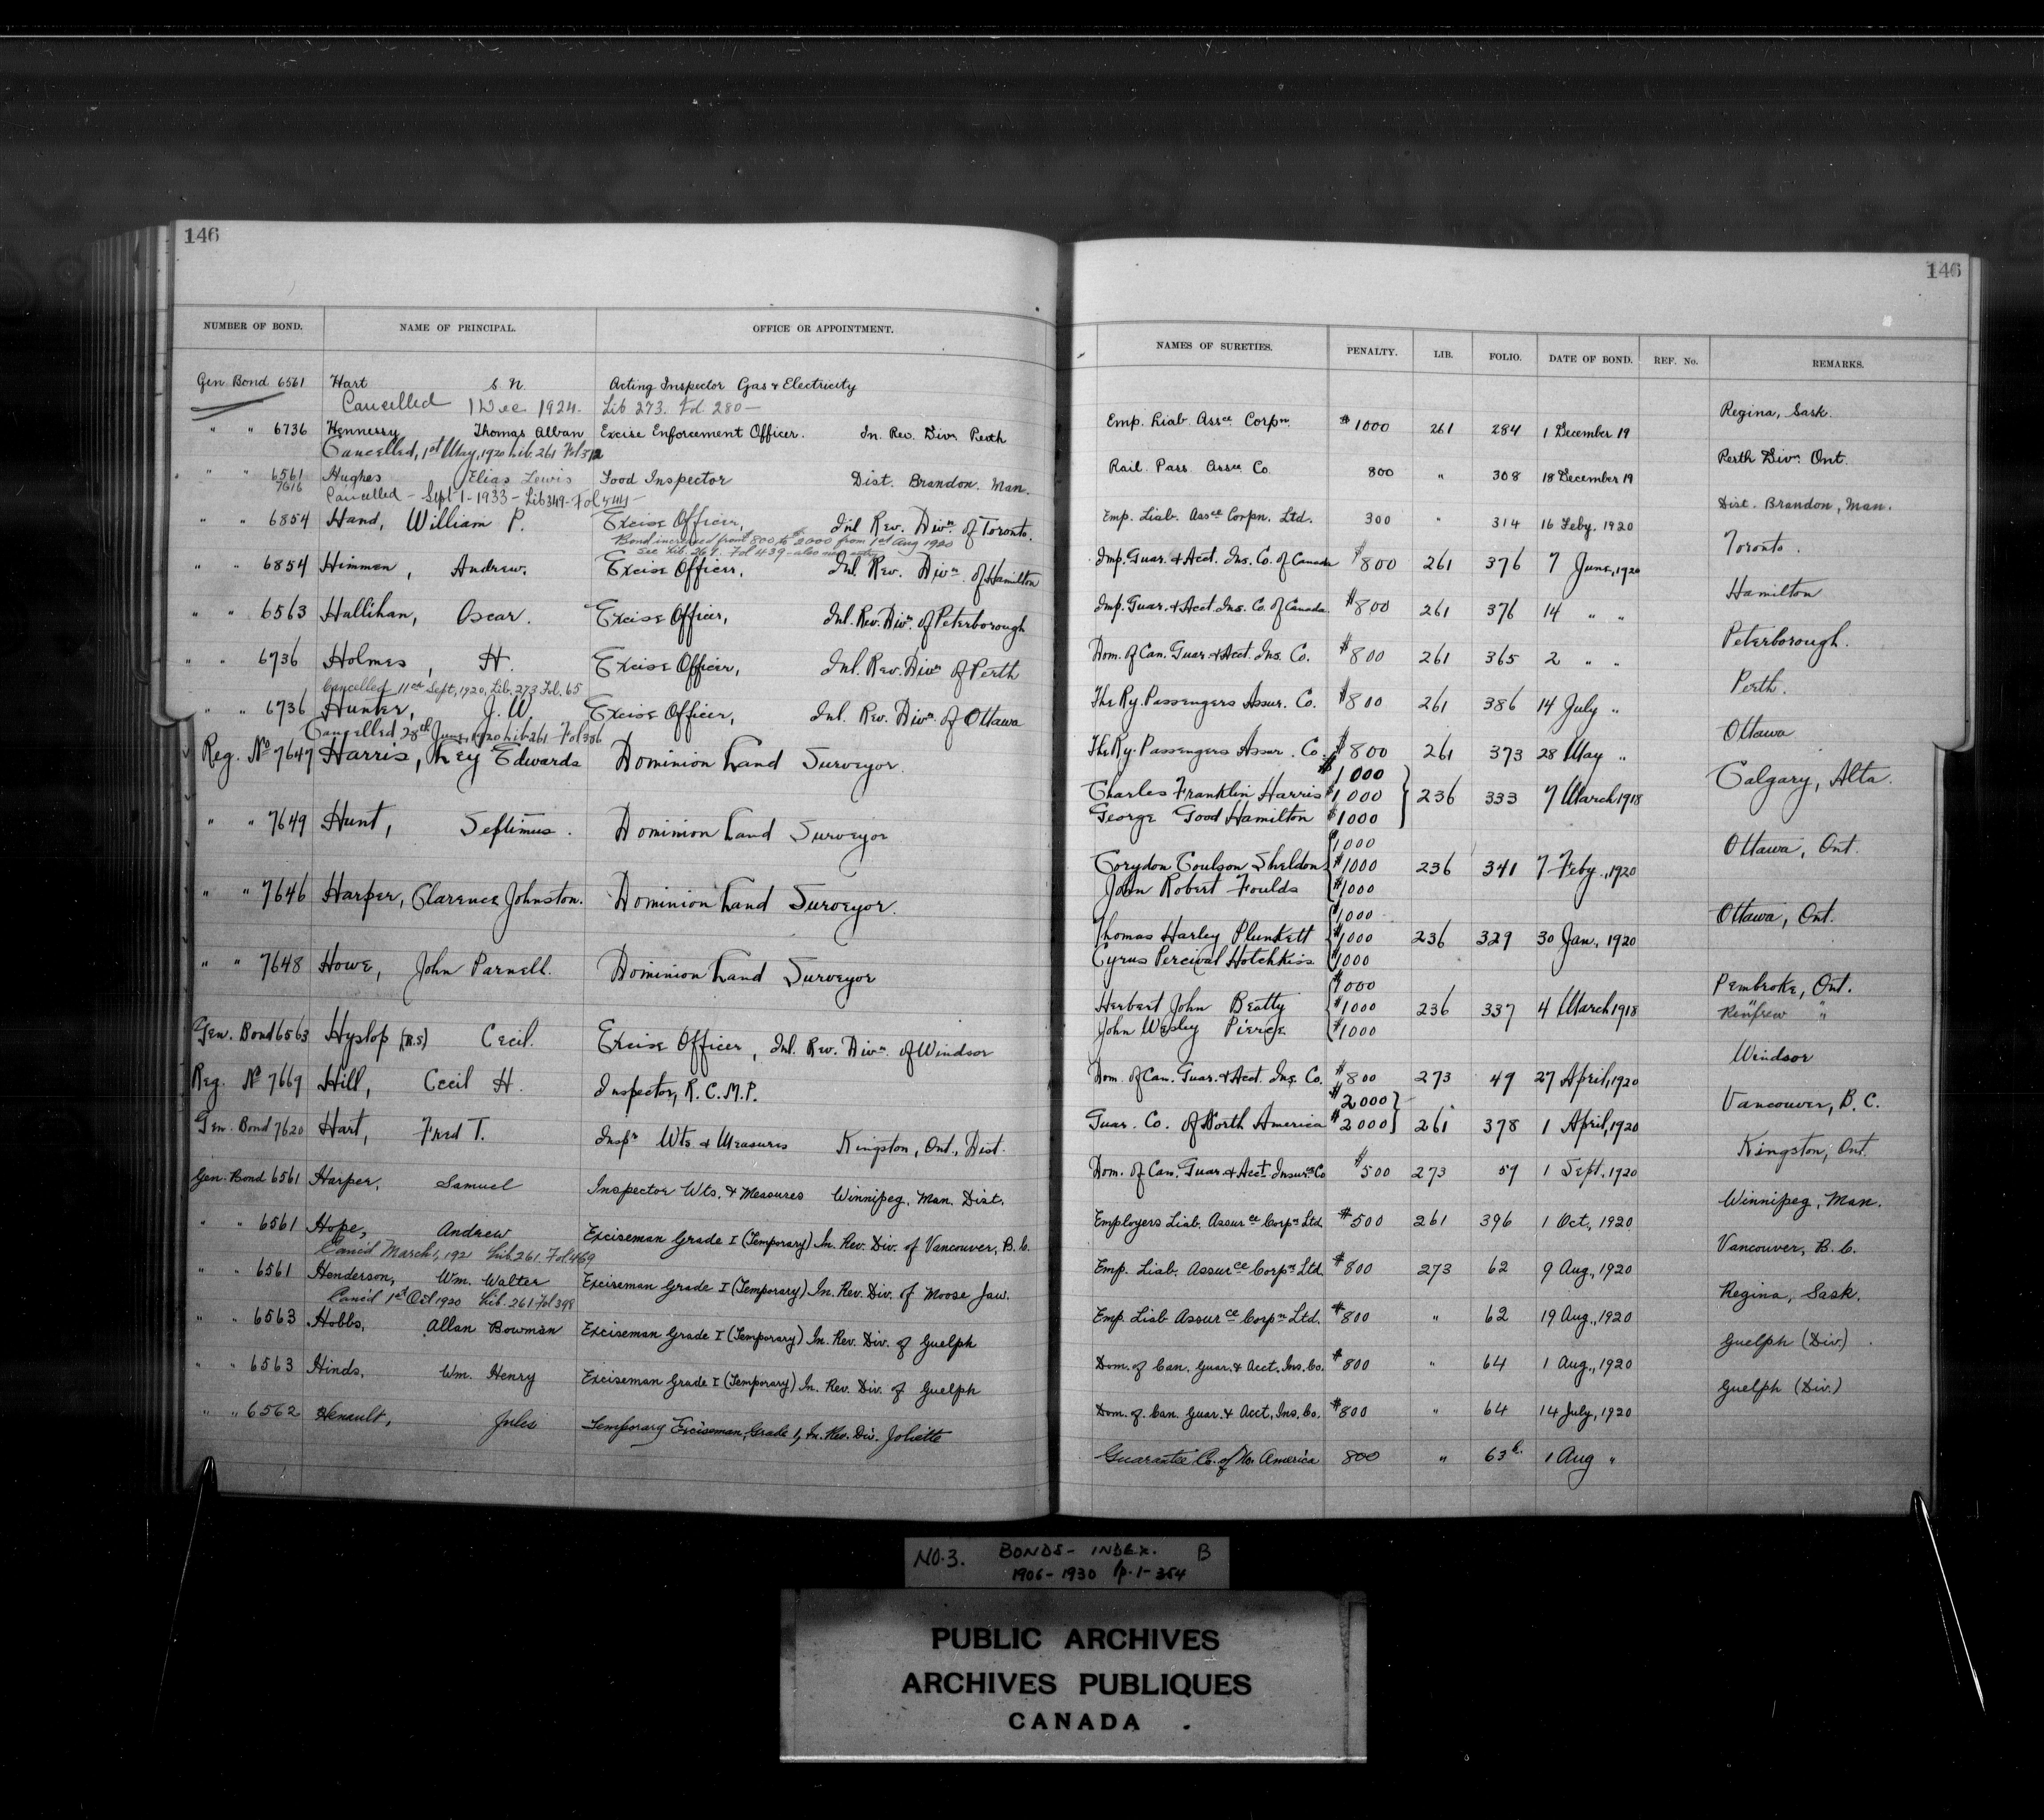 146
NUMBER OF BOND. NAME OF PRINCIPAL. OFFICE OR APPOINTMENT.
Gen Bond 6561 Hart Acting Inspector Gas & Electricity
Cancelled 1 Dec 1924. Lib 273. Fol 280 —
" " 6736 Hennessy Thomas Alban Excise Enforcement Officer. In. Rev. Divn Perth
Cancelled, 1st May, 1920 Lib. 261 Fol 312
" " 6561 Hughes Elias Lewis Food Inspector Dist. Brandon. Man.
7616 Cancelled - Sept 1 - 1933 - Lib 349 - Fol
" " 6854 Hand, William P. Excise Officer, Inl Rev. Divn of Toronto.
Bond increased from 800 to 2000 from 1st Aug 1920
See Lib. 261. Fol 439 - also
" " 6854 Himmen, Andrew. Excise Officer, Inl. Rev. Divn of Hamilton
" " 6563 Hallihan, Oscar. Excise Officer, Inl. Rev. Divn of Peterborough
" " 6736 Holmes, H. Excise Officer, Inl. Rev. Divn of Perth
Cancelled 11th Sept, 1920, Lib. 273 Fol. 65
" " 6736 Hunter, J. W. Excise Officer, Inl. Rev. Divn. of Ottawa
Cancelled 28th June, 1920 Lib 261 Fol 386
Reg. No 7647 Harris, Edwards Dominion Land Surveyor.
" " 7649 Hunt, Septimus. Dominion Land Surveyor
" " 7646 Harper, Clarence Johnston. Dominion Land Surveyor.
" " 7648 Howe, John Parnell. Dominion Land Surveyor
Gen. Bond 6563 Hyslop (R.S) Cecil. Excise Officer, Inl. Rev. Divn. of Windsor
Reg. No 7669 Hill, Cecil H. Inspector, R.C.M.P.
Gen. Bond 7620 Hart, Fred T. Inspr Wts & Measures Kingston, Ont., Dist.
Gen. Bond 6561 Harper, Samuel Inspector Wts. & Measures Winnipeg, Man. Dist.
" " 6561 Hope, Andrew Exciseman Grade I (Temporary) In. Rev. Div. of Vancouver, B.C.
Canc'd March 1, 192 Lib. 261 Fol 469
" " 6561 Henderson, Wm. Walter Exciseman Grade I (Temporary) In. Rev. Div. of Moose Jaw.
Canc'd 1st Oct 1920 Lib. 261 Fol 398
" " 6563 Hobbs, Allan Bowman Exciseman Grade I (Temporary) In. Rev. Div. of Guelph
" " 6563 Hinds, Wm. Henry Exciseman Grade I (Temporary) In. Rev. Div. of Guelph
" " 6562 Henault, Jules Temporary Exciseman, Grade 1, In. Rev. Div. Joliette
146
NAMES OF SURETIES. PENALTY. LIB. FOLIO. DATE OF BOND. REF. No. REMARKS.
Emp. Liab. Assce Corpn. $1000 261 284 1 December 19 Regina, Sask.
Rail. Pass. Assce Co. 800 " 308 18 December 19 Perth Divn. Ont.
Emp. Liab. Assce Corpn. Ltd. 300 " 314 16 Feby. 1920 Dist. Brandon, Man.
Imp. Guar. & Acct. Ins. Co. of Canada $800 261 376 7 June, 1920 Toronto.
Imp. Guar. & Acct. Ins. Co. of Canada. $800 261 376 14 " " Hamilton
Dom. of Can. Guar. & Acct. Ins. Co. $800 261 365 2 " " Peterborough.
The Ry. Passengers Assur. Co. $800 261 386 14 July " Perth.
The Ry. Passengers Assur. Co. $800 261 373 28 May " Ottawa
$1000
Charles Franklin Harris $1000 236 333 7 March 1918 Calgary, Alta.
George Good Hamilton $1000
$1000
Corydon Coulson Sheldon $1000 236 341 7 Feby., 1920 Ottawa, Ont.
John Robert Foulds $1000
$1000
Thomas Harley Plunkett $1000 236 329 30 Jan., 1920 Ottawa, Ont.
Cyrus Percival Hotchkiss $1000
$1000 Pembroke, Ont.
Herbert John Beatty $1000 236 337 4 March 1918 Renfrew "
John Wesley Pierce $1000
Dom. of Can. Guar. & Acct. Ins. Co. $800 273 49 27 April, 1920 Windsor
$2000
Guar. Co. of North America $2000 261 378 1 April, 1920 Vancouver, B.C.
Dom. of Can. Guar. & Acct. Insurce Co $500 273 59 1 Sept. 1920 Kingston, Ont.
Employers Liab. Assurce Corpn Ltd. $500 261 396 1 Oct, 1920 Winnipeg, Man.
Emp. Liab. Assurce Corpn Ltd. $800 273 62 9 Aug., 1920 Vancouver, B.C.
Emp. Liab Assurce Corpn Ltd. $800 " 62 19 Aug., 1920 Regina, Sask.
Dom. of Can. Guar. & Acct. Ins. Co. $800 " 64 1 Aug., 1920 Guelph (Div)
Dom. of Can. Guar. & Acct. Ins. Co. $800 " 64 14 July, 1920 Guelph (Div.)
Guarantee Co. of No. America 800 " 63 1 Aug "
NO. 3. BONDS - INDEX. B
1906 - 1930 p. 1 - 354
PUBLIC ARCHIVES
ARCHIVES PUBLIQUES
CANADA